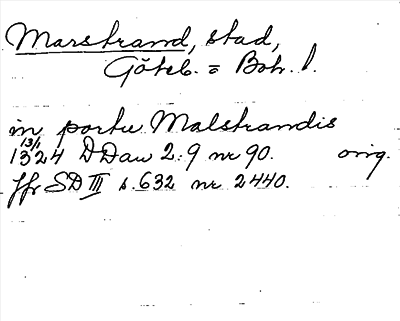 Marstrand, stad,
Göteb. = Boh. l.
in portu Malstrandis
13/1
1324 DDan 2:9 nr 90. orig.
Jfr SD III s. 632 nr 2440.